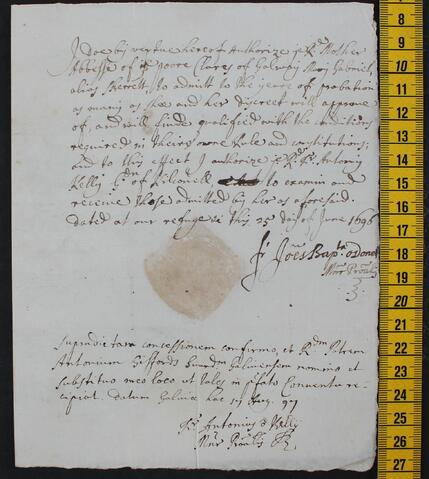 I doe by vertue hereof Authorize ye Rd Mother
Abbesse of ye poore Clares of Galway Mary Gabriel,
alias Skerrett to admitt to the yeare of probation
as many as shee and her discreet will approve
of, and will finde qualified with the conditions
required in theire owne Rule and constitutions;
and to this effect I authorize ye Rd Fr Antony
Kelly Gdn of Kilconell to examin and
receive those admitted by her as aforesaid.
dated at our refuge this 25 day of June 1696
fr Joes Bapta ODonel
Minr Provlis
Supradictam concessionem confirmo, et Rdm Patrem
Antonium Giffords Guardm Galviensem nomino et
substituo meo loco ut tales in pfato Conventu re-
cipiat. Datum Galviae hac 97
Fr Antonius Kelly
Minr Provlis
7
8
9
10
11
12
13
14
15
16
17
18
19
20
22
23
24
25
26
27